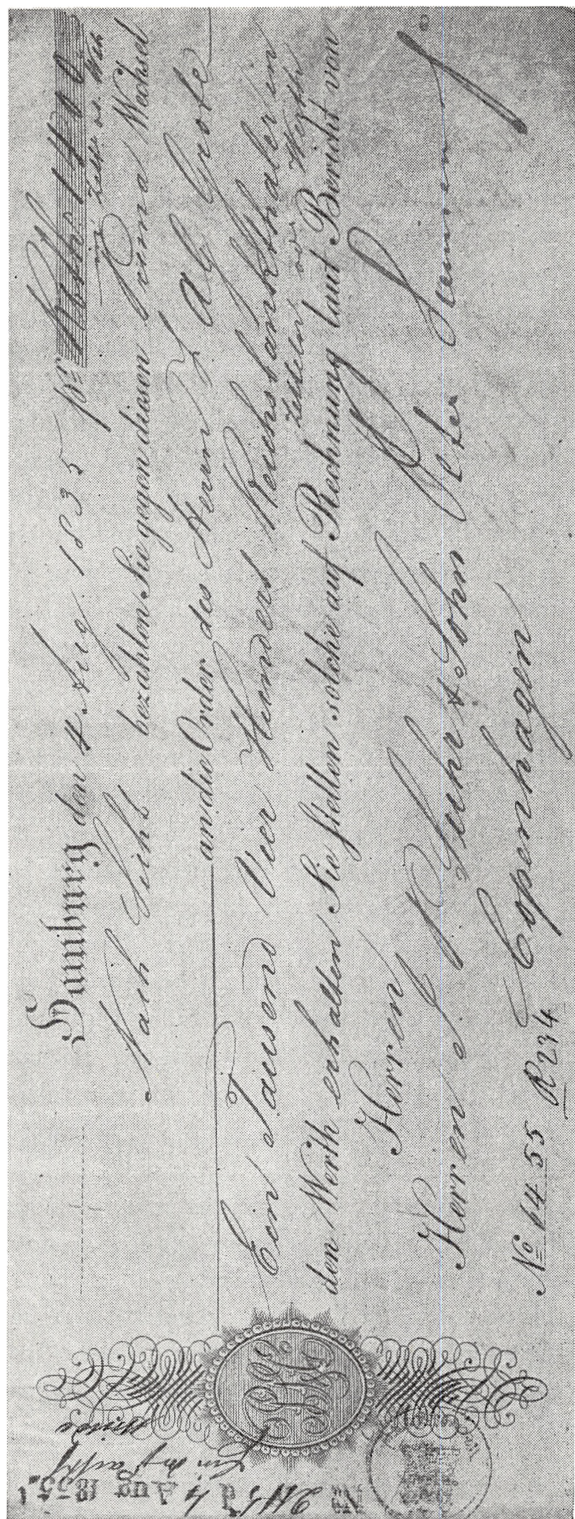 Hamburg den 4 Aug 1835 pr Rbth. 1400
Nach Sicht bezahlen Sie gegen diesen Prima Wechsel
an die Order des Herrn A G Grote
Ein Tausend Vier Hundert Reichsbankthaler in
den Werth erhalten Sie stellen solche auf Rechnung laut Bericht von
Herren
Herren J Suhr & Sohn Peter
Copenhagen
No 6455 R 234
4 Aug 1835